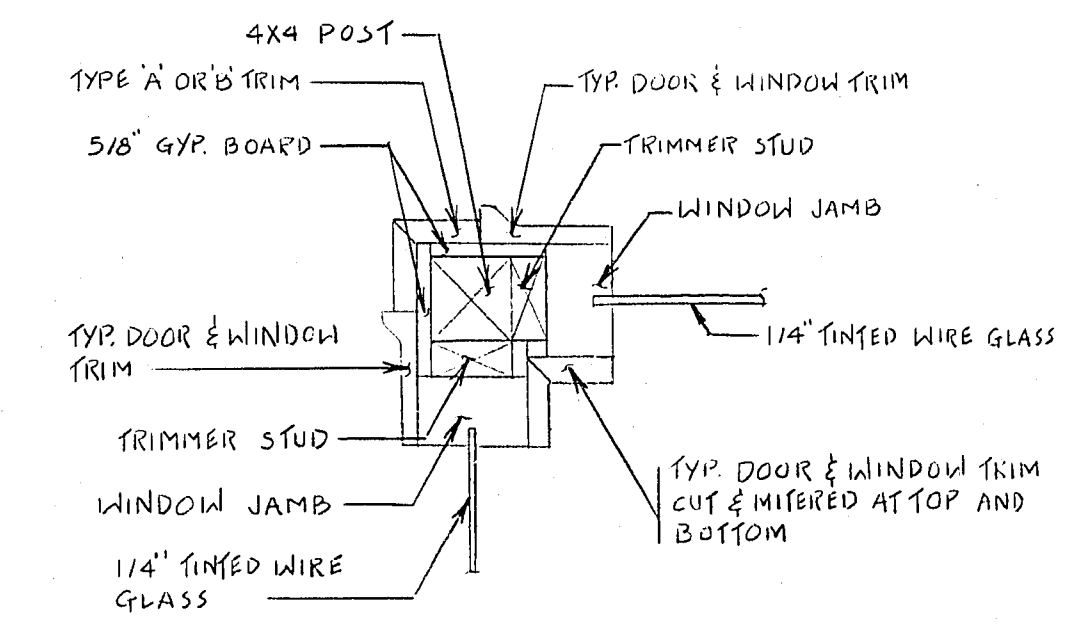 4X4 POST
TYPE 'A' OR 'B' TRIM
5/8" GYP. BOARD
TYP. DOOR & WINDOW TRIM
TRIMMER STUD
WINDOW JAMB
1/4" TINTED WIRE GLASS
TYP. DOOR & WINDOW
TRIM
TRIMMER STUD
WINDOW JAMB
1/4" TINTED WIRE
GLASS
TYP. DOOR & WINDOW TRIM
CUT & MITERED AT TOP AND
BOTTOM